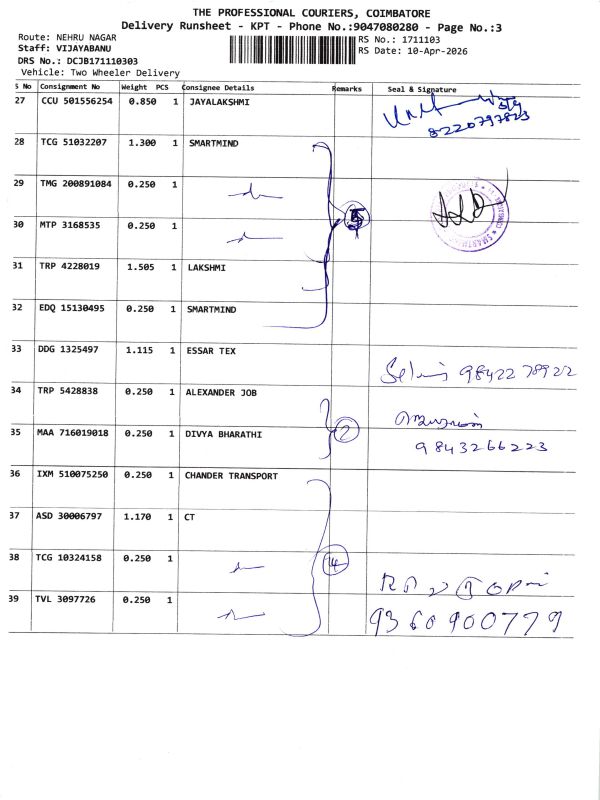 THE PROFESSIONAL COURIERS, COIMBATORE
Delivery Runsheet - KPT - Phone No.:9047080280 - Page No.:3
Route: NEHRU NAGAR
RS No.: 1711103
Staff: VIJAYABANU
RS Date: 10-Apr-2026
DRS No.: DCJB171110303
Vehicle: Two Wheeler Delivery
S No Consignment No Weight PCS Consignee Details Remarks Seal & Signature
27 CCU 501556254 0.850 1 JAYALAKSHMI
8220797823
28 TCG 51032207 1.300 1 SMARTMIND
29 TMG 200891084 0.250 1
30 MTP 3168535 0.250 1
5
31 TRP 4228019 1.505 1 LAKSHMI
32 EDQ 15130495 0.250 1 SMARTMIND
33 DDG 1325497 1.115 1 ESSAR TEX
9842278922
34 TRP 5428838 0.250 1 ALEXANDER JOB
35 MAA 716019018 0.250 1 DIVYA BHARATHI 2 9843266223
36 IXM 510075250 0.250 1 CHANDER TRANSPORT
37 ASD 30006797 1.170 1 CT
38 TCG 10324158 0.250 1 4
39 TVL 3097726 0.250 1 9360900779